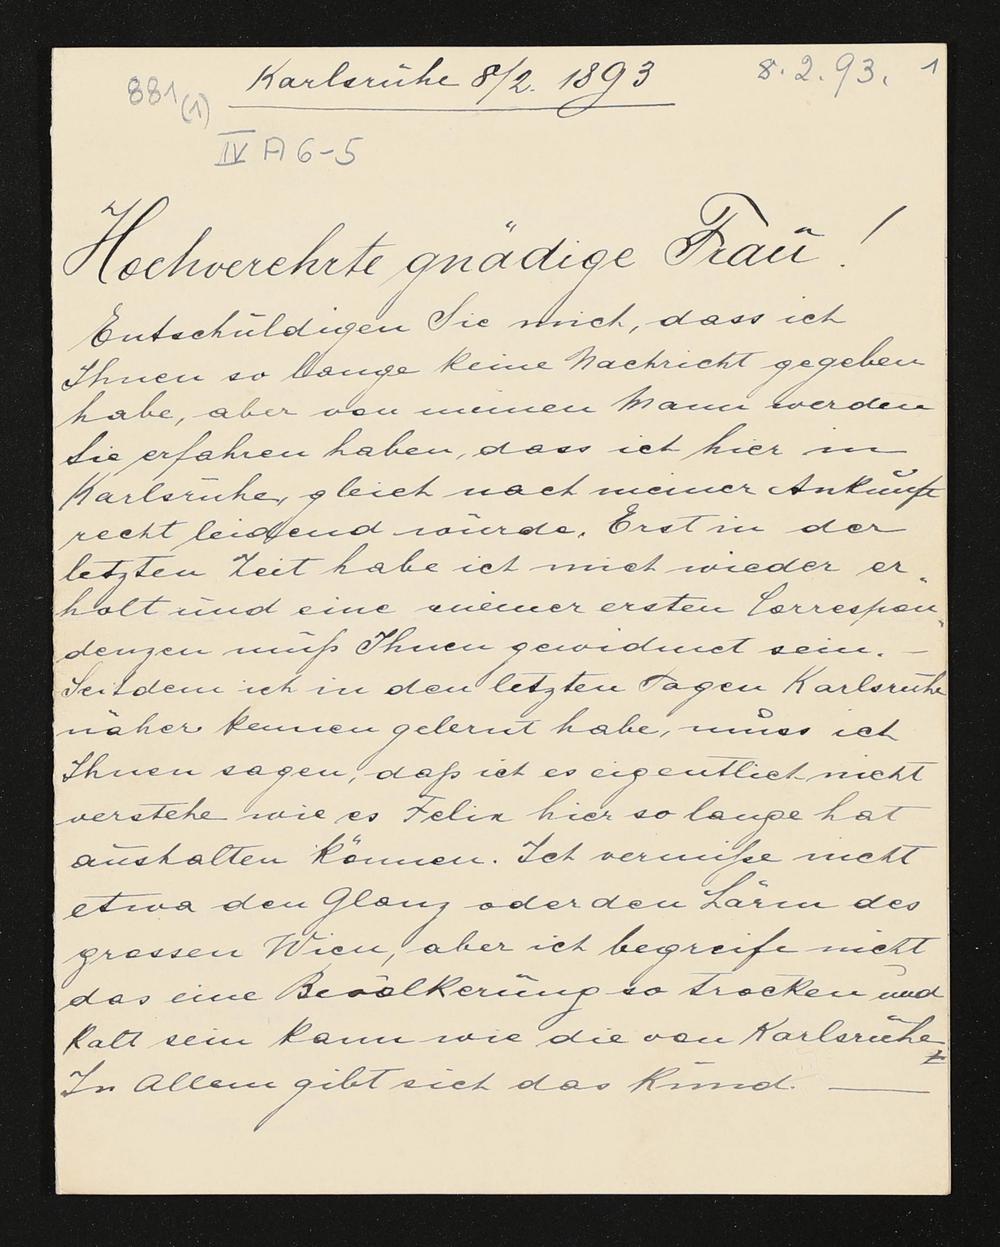 Karlsruhe 8/2. 1893
8.2.93. 1
881(1)
IV A 6-5
Hochverehrte gnädige Frau!
Entschuldigen Sie mich, dass ich
Ihnen so lange keine Nachricht gegeben
habe, aber von meinen Mann werden
Sie erfahren haben, dass ich hier in
Karlsruhe, gleich nach meiner Ankunft
recht leidend wurde. Erst in der
letzten Zeit habe ich mich wieder er-
holt und eine meiner ersten Correspon-
denzen muß Ihnen gewidmet sein. —
Seitdem ich in den letzten Tagen Karlsruhe
näher kennen gelernt habe, muss ich
Ihnen sagen, daß ich es eigentlich nicht
verstehe wie es Felix hier so lange hat
aushalten können. Ich vermiße nicht
etwa den Glanz oder den Lärm des
grossen Wien, aber ich begreife nicht
das eine Bevölkerung so trocken und
kalt sein kann wie die von Karlsruhe
In Allem gibt sich das kund. —